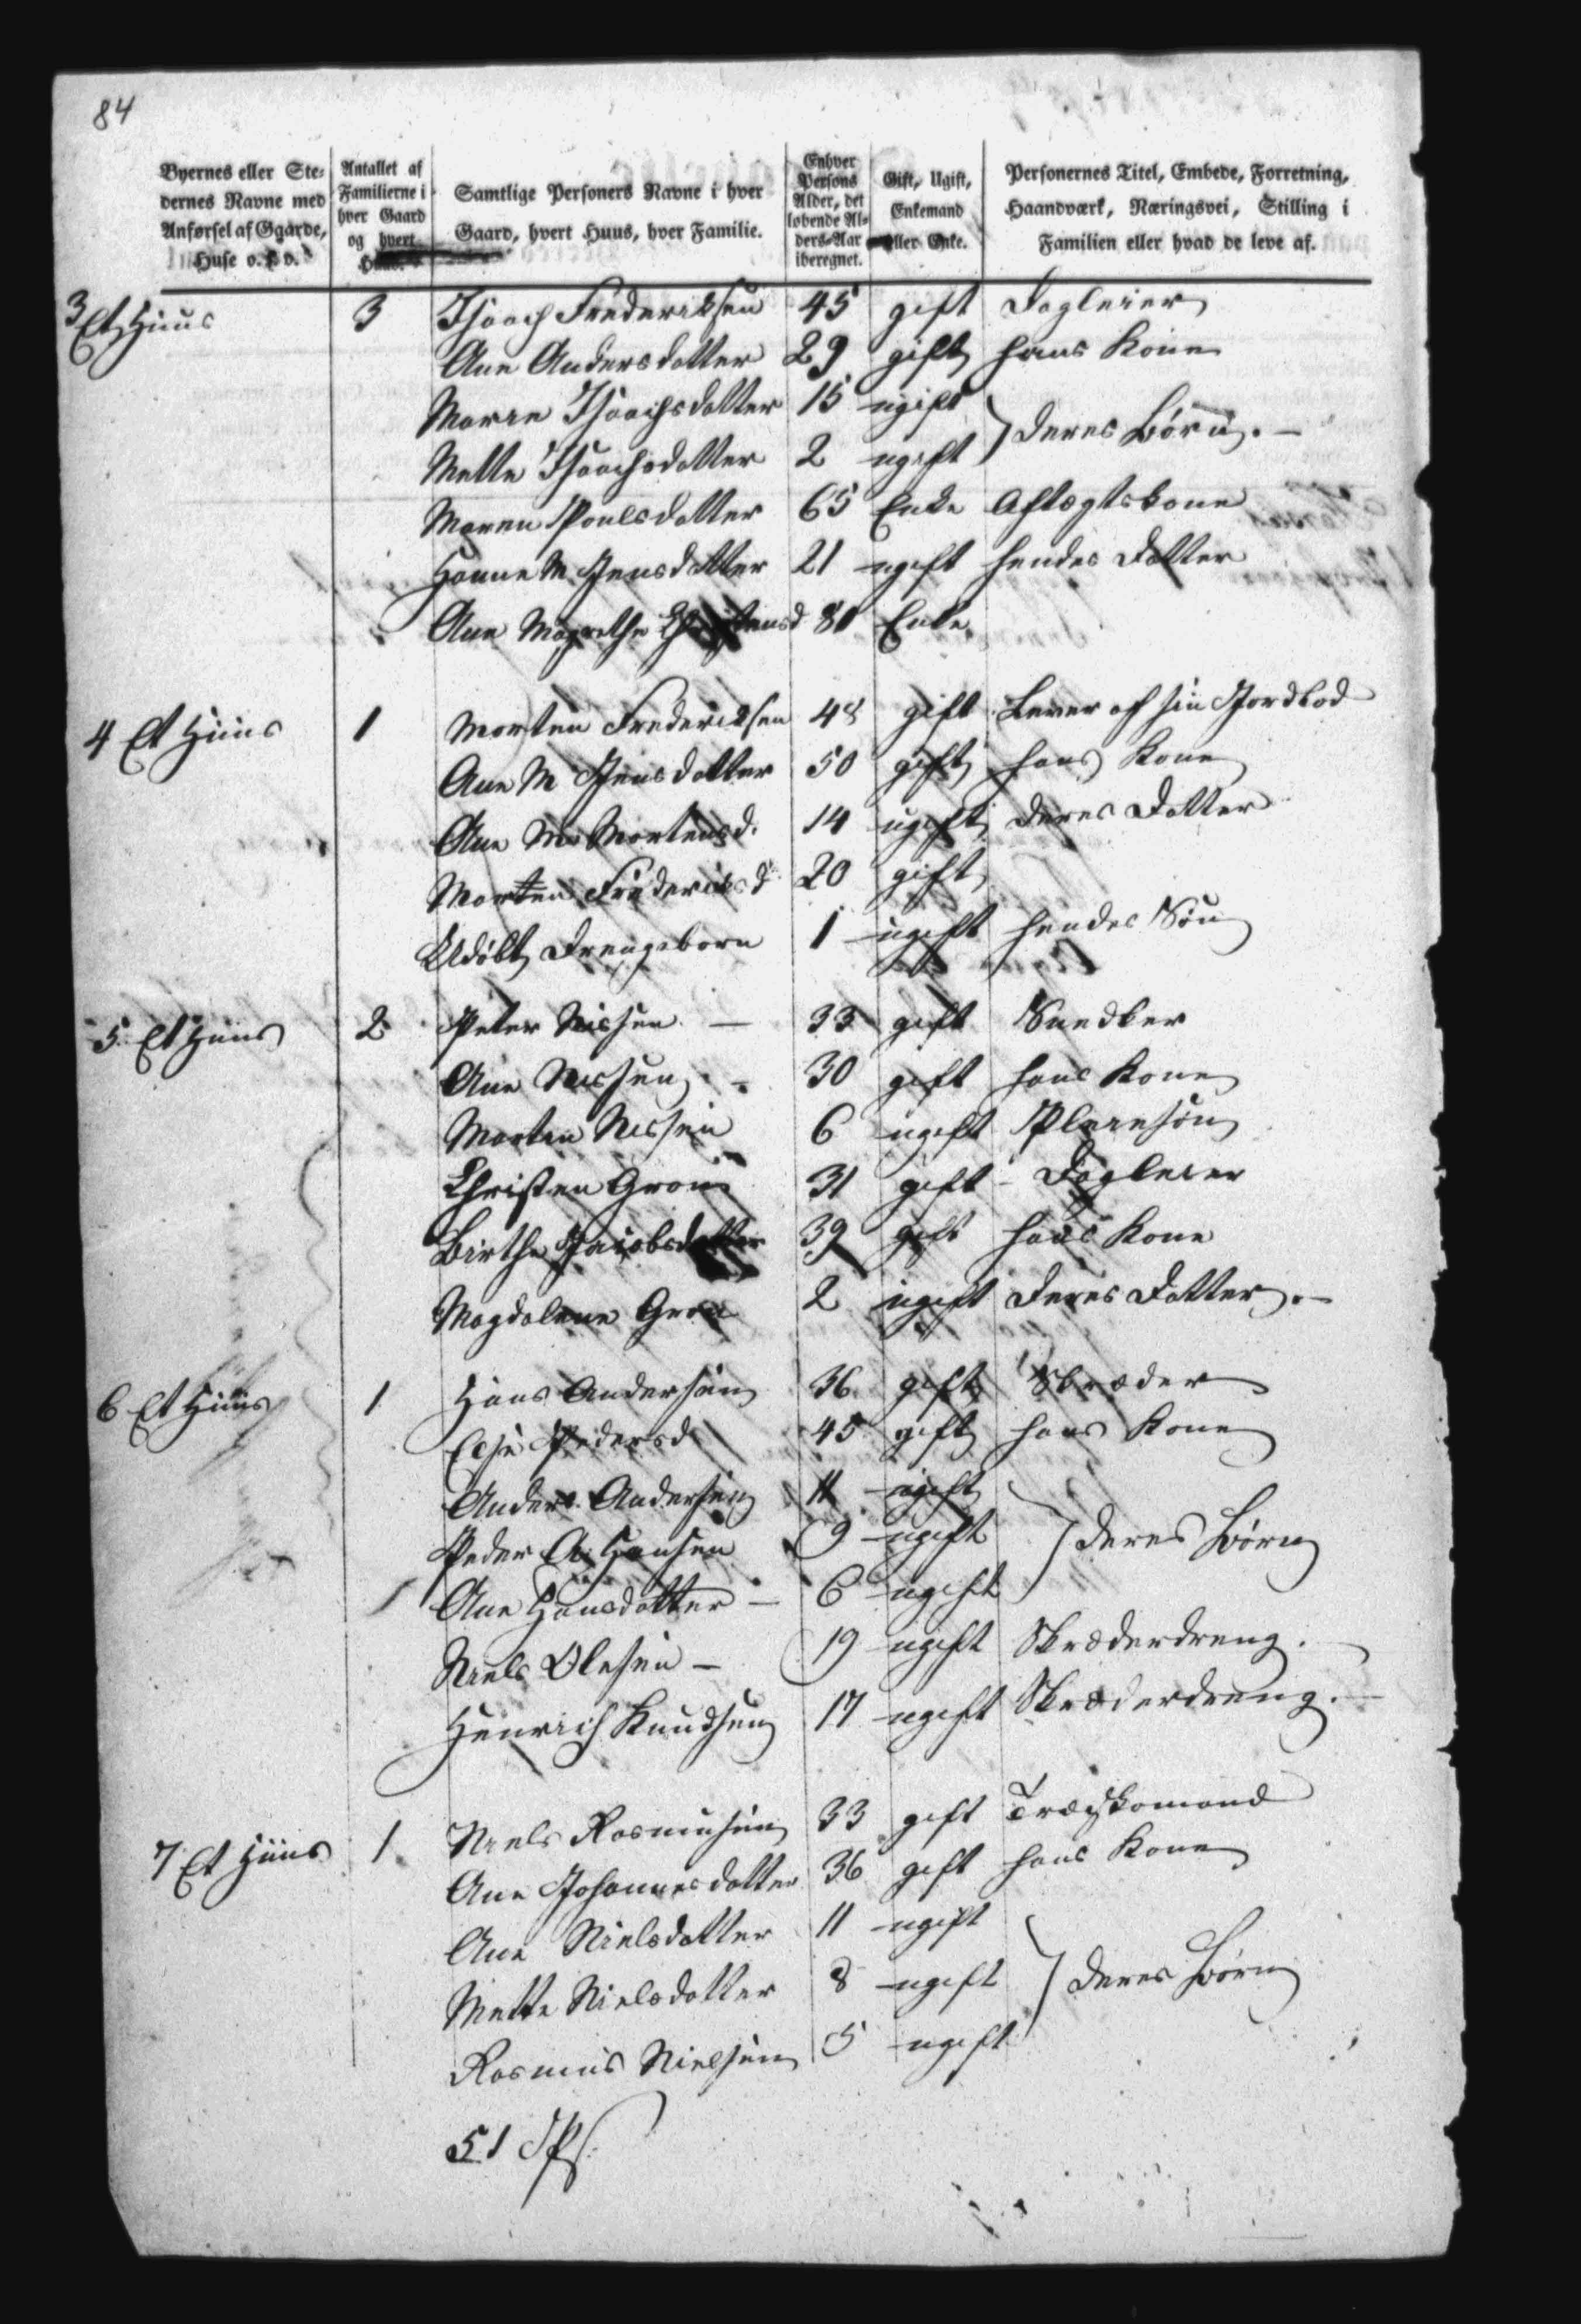 84
Byernes eller Ste-dernes Navne med Anførsel af Ggårde, Huse o. s. v. | Antallet af Familierne i hver Gaard og hvert Huus. | Samtlige Personers Navne i hver Gaard, hvert Huus, hver Familie. | Enhver Persons Alder, det løbende Al-ders-Aar iberegnet. | Gift, Ugift, Enkemand eller Enke. | Personernes Titel, Embede, Forretning, Haandværk, Næringsvei, Stilling i Familien eller hvad de leve af.
3 Et Huus 3 Isaach Frederiksen 45 gift Dagleier
Ane Andersdatter 29 gift hans Kone
Maren Isaachsdatter 15 ugift
} deres Børn. –
Mette Isaachsdatter 2 ugift
Maren Poulsdatter 65 Enke Aftægtskone
Hanne M. Jensdatter 21 ugift hendes Datter
Ane Magrethe 80 Enke
4 Et Huus 1 Morten Frederiksen 48 gift Lever af sin Jordlod
Ane M Jensdatter 50 gift hans Kone
Ane M. Mortensd. 14 ugift deres Datter
Morten Frederiksd 20 gift
Udøbt Drengeborn 1 ugift hendes Søn
5 Et Huus 2 Peter Nissen – 33 gift Snedker
Ane Nissen – 30 gift hans Kone
Morten Nissen 6 ugift Pleiesøn
Christen Gron 31 gift – Dagleier
Birthe Jacobsdatter 39 gift hans Kone
Magdalene Gron 2 ugift deres Datter. –
6 Et Huus 1 Hans Andersen 36 gift Skræder
Else Pedersd 45 gift hans Kone
Anders Andersen 11 ugift
Peder A. Hansen 9 ugift } deres Børn
Ane Hansdatter – 6 ugift
Niels Olesen – 19 ugift Skræderdreng.
Henrich Knudsen 17 ugift Skræderdreng. –
7 Et Huus 1 Niels Rasmusen 33 gift Træskomand
Ane Johannesdatter 36 gift hans Kone
Ane Nielsdatter 11 ugift
Mette Nielsdatter 8 ugift } deres Børn
Rasmus Nielsen 5 ugift
51